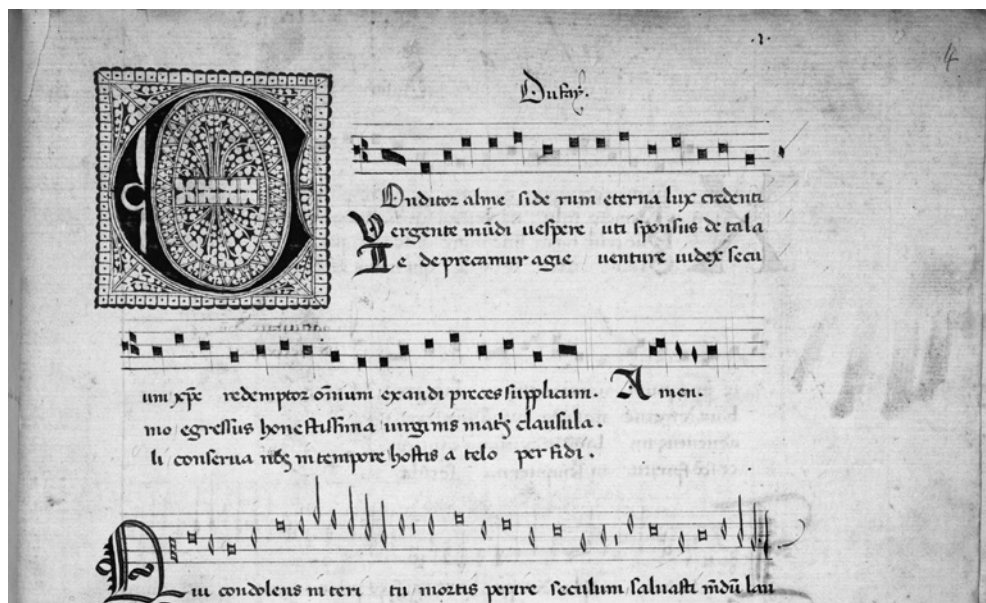 .1.
4
Dufaÿ.
Onditor alme side rum eterna lux credenti
Vergente mūdi vespere uti sponsus de tala
Te deprecamur agie venture iudex secu
um xp̄e redemptor om̄ium exaudi preces supplicum. Amen.
mo egressus honestissima virginis matris clausula.
li conserva nos in tempore hostis a telo perfidi.
Qui condolens interi tu mortis perire seculum salvasti mūdū lan